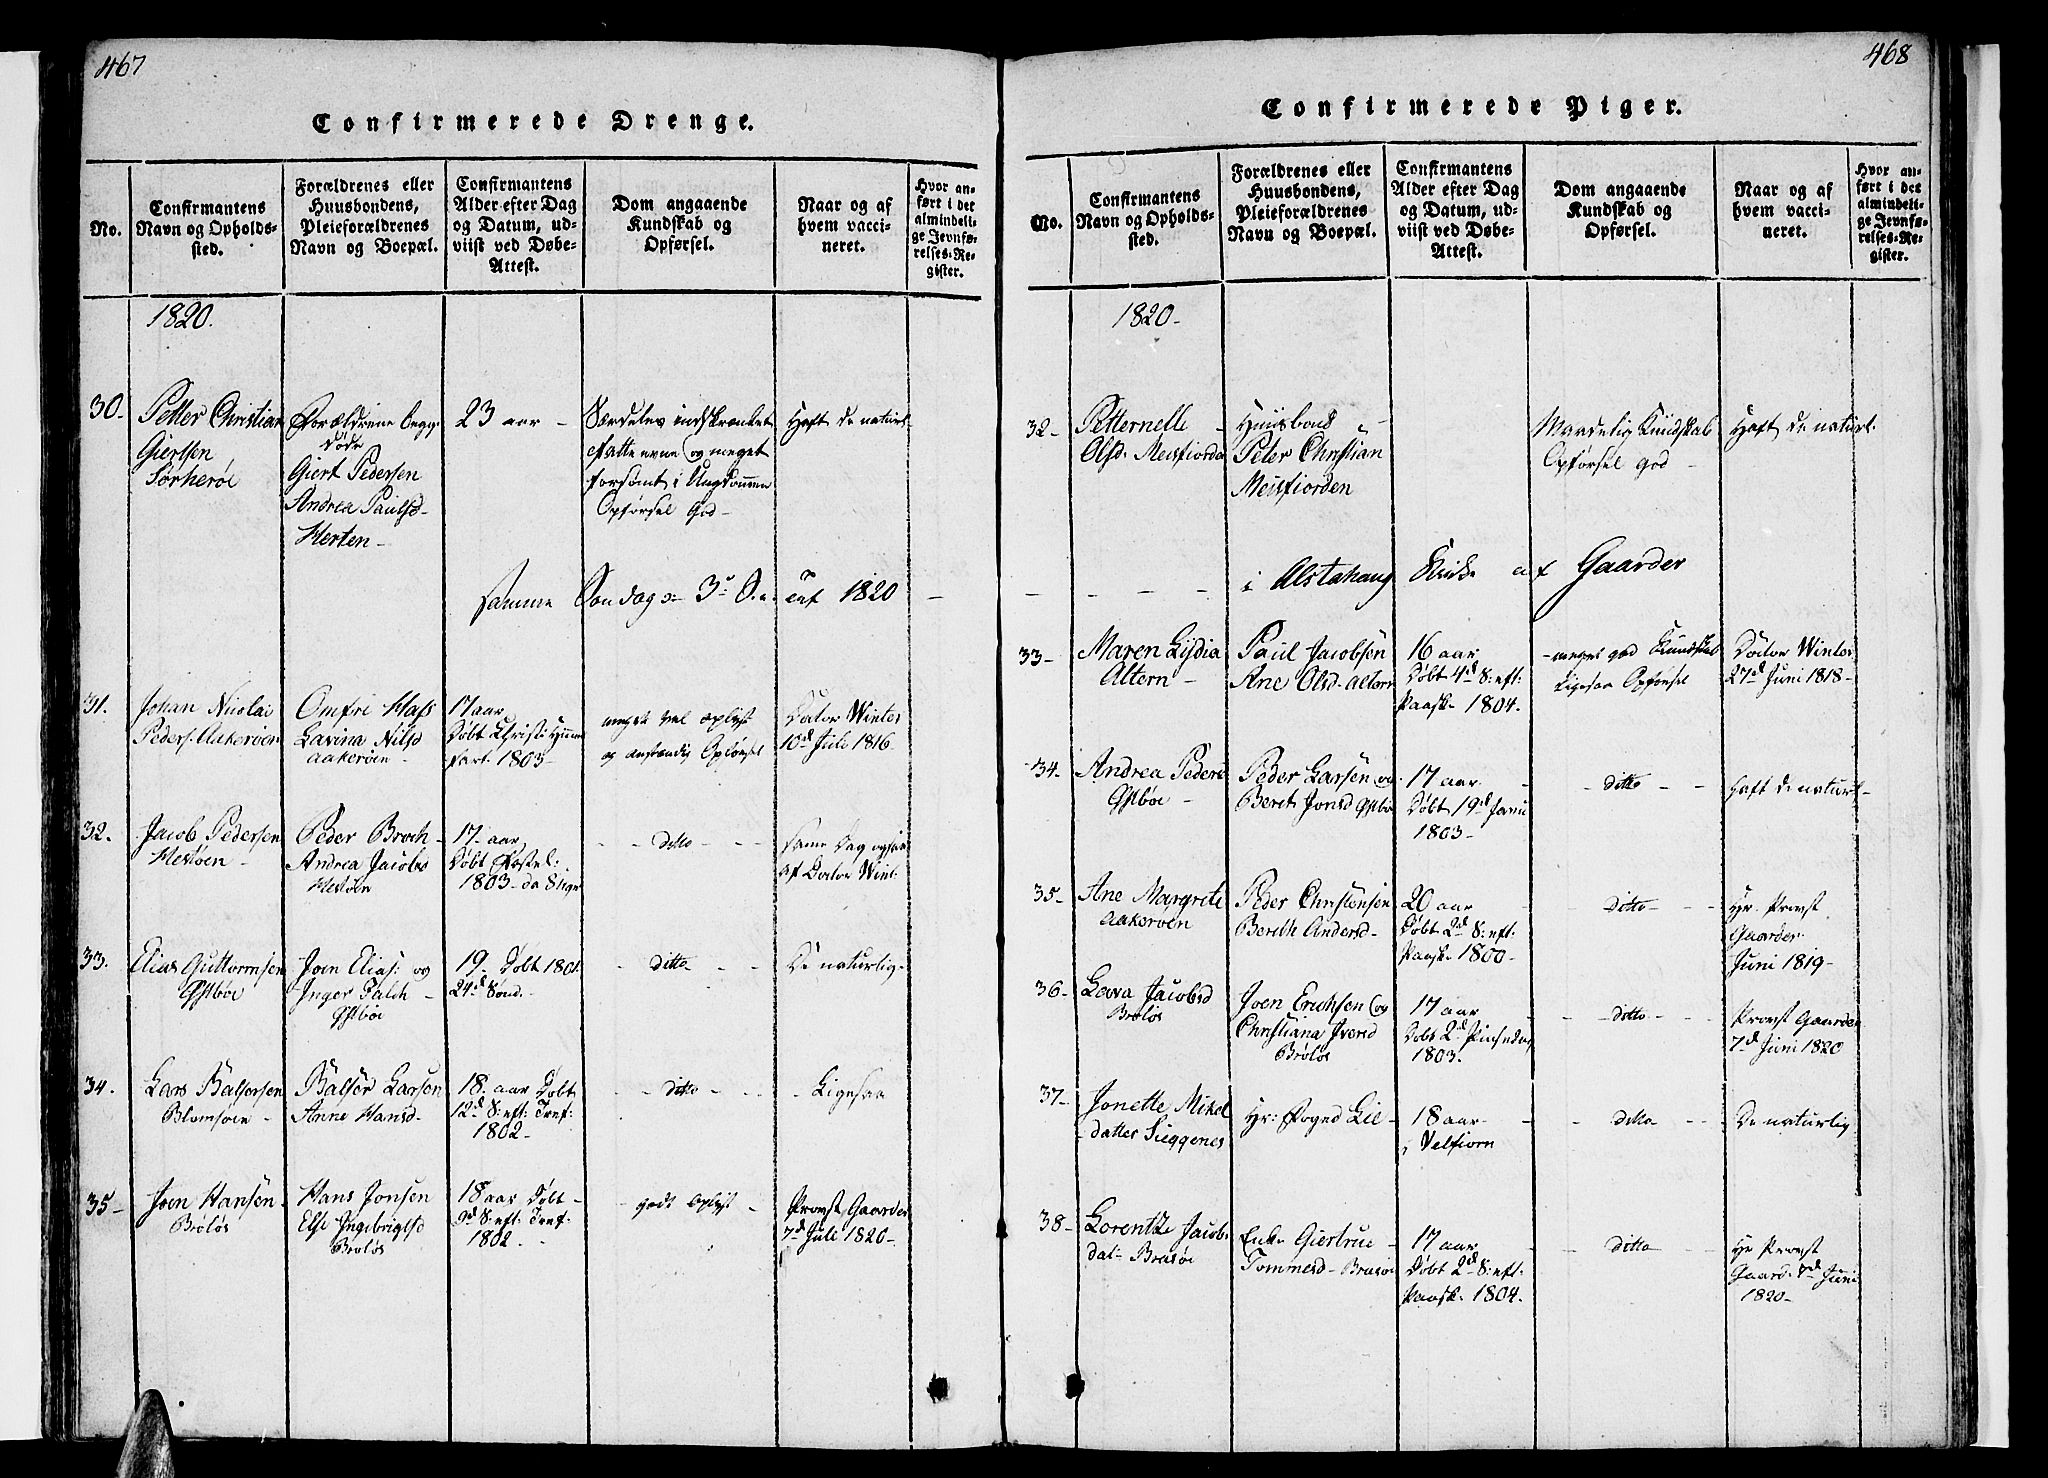 467
Confirmerede Drenge.
No.
Confirmantens
Navn og Opholds-
sted.
Forældrenes eller
Huusbondens,
Pleieforældrenes
Navn og Boepæl.
Confirmantens
Alder efter Dag
og Datum, ud-
viist ved Døbe-
Attest.
Dom angaaende
Kundskab og
Opførsel.
Naar og af
hvem vacci-
neret.
Hvor an-
ført i det
almindeli-
ge Jevnfø-
relses-Re-
gister.
1820.
30-
Petter Christian
Giertsen
Sørherøe
Forældrene begge
døde
Giert Pedersen
Andrea Paulsd-
Herten-
23 aar -
Særdeles indskrænket
Fatteevne og meget
forsømt i Ungdommen
Opførsel God-
Haft de naturl-
samme Søndag 3 1820
31.
Johan Nicolai
Peders. Aakerøen
Omfri Hass
Lavina Nilsd
Aakerøen-
17 aar
Døbt Christi Himm
fart. 1803-
meget vel oplyst
og anstændig Opførsel
Doctor Winter
10d Juli 1816.
32.
Jacob Pedersen
Hestøen-
Peder Broch-
Andrea Jacobsd
Hestøen
17- aar
Døbt
1803-
- - ditto - - -
samme Dag ogsaa
af Doctor Wint:
33.
Elias Guttormsen
Østbøe
Joen Elias: og
Inger Falch-
Østbøe
19- Døbt 1801.
24d Sønd.-
- ditto - -
De naturlig-
34.
Lars Baltsersen
Blomsøen-
Baltser Larsen
Anne Hansd-
18. aar Døbt
12d S: eft: Tref:
1802-
- ditto - - -
- Ligesaa
35-
Joen Hansen-
Brøløs
Hans Jonsen
Else Ingebrigtsd
Brøløs
18 aar Døbt-
9d S: eft: Tref:
1802-
- godt oplyst -
Provst Gaarder
7d Juli 1820-
468
Confirmerede Piger.
No.
Confirmantens
Navn og Opholds-
sted.
Forældrenes eller
Huusbondens,
Pleieforældrenes
Navn og Boepæl.
Confirmantens
Alder efter Dag
og Datum, ud-
viist ved Døbe-
Attest.
Dom angaaende
Kundskab og
Opførsel.
Naar og af
hvem vacci-
neret.
Hvor an-
ført i det
almindeli-
ge Jevnfø-
relses-Re-
gister.
1820-
32-
Petternelle -
Olsd- Meisfiorden
Huusbond -
Peter Christian
Meisfiorden
Maadelig Kundskab
Opførsel god -
Haft de naturl.
i Alstahaug Kirke af Gaarder
33-
Maren Lydia
Altern -
Paul Jacobsen
Ane Olsd- Altern
16 aar
Døbt 4d S: eft:
Paask- 1804.
- meget god Kundskab
Ligesaa Opførsel
Doctor Winter
27d Juni 1818-
34-
Andrea Peders
Østbøe -
Peder Larsen og
Beret Jonsd Østbøe
17 aar
Døbt 19d Juni
1803-
- ditto - -
haft de naturl-
35-
Ane Margrete
Aakerøen
Peder Christensen
Bereth Andersd-
20 aar
Døbt 2d S: eft:
Paask- 1800-
- ditto - -
Hr. Provst
Gaarder
Juni 1819-
36-
Lava Jacobsd
Brøløs
Joen Erichsen og
Christiana Iversd
Brøløs
17 aar
Døbt 2d Pinsedag
1803.
- ditto - -
Provst Gaarder
7d Juni 1820
37-
Jonette Mikel
datter Sieggenes
Hr: Foged Lie-
18 aar -
i Velfiorn
- ditto - -
De naturlig
38-
Lorentze Jacob-
dat- Brasøe
Enke Giertrue -
Tommesd- Brasøe
17 aar
Døbt 2d S: eft:
Paask- 1804.
- ditto -
Hr Provst
Gaard- 7d Juni
1820-